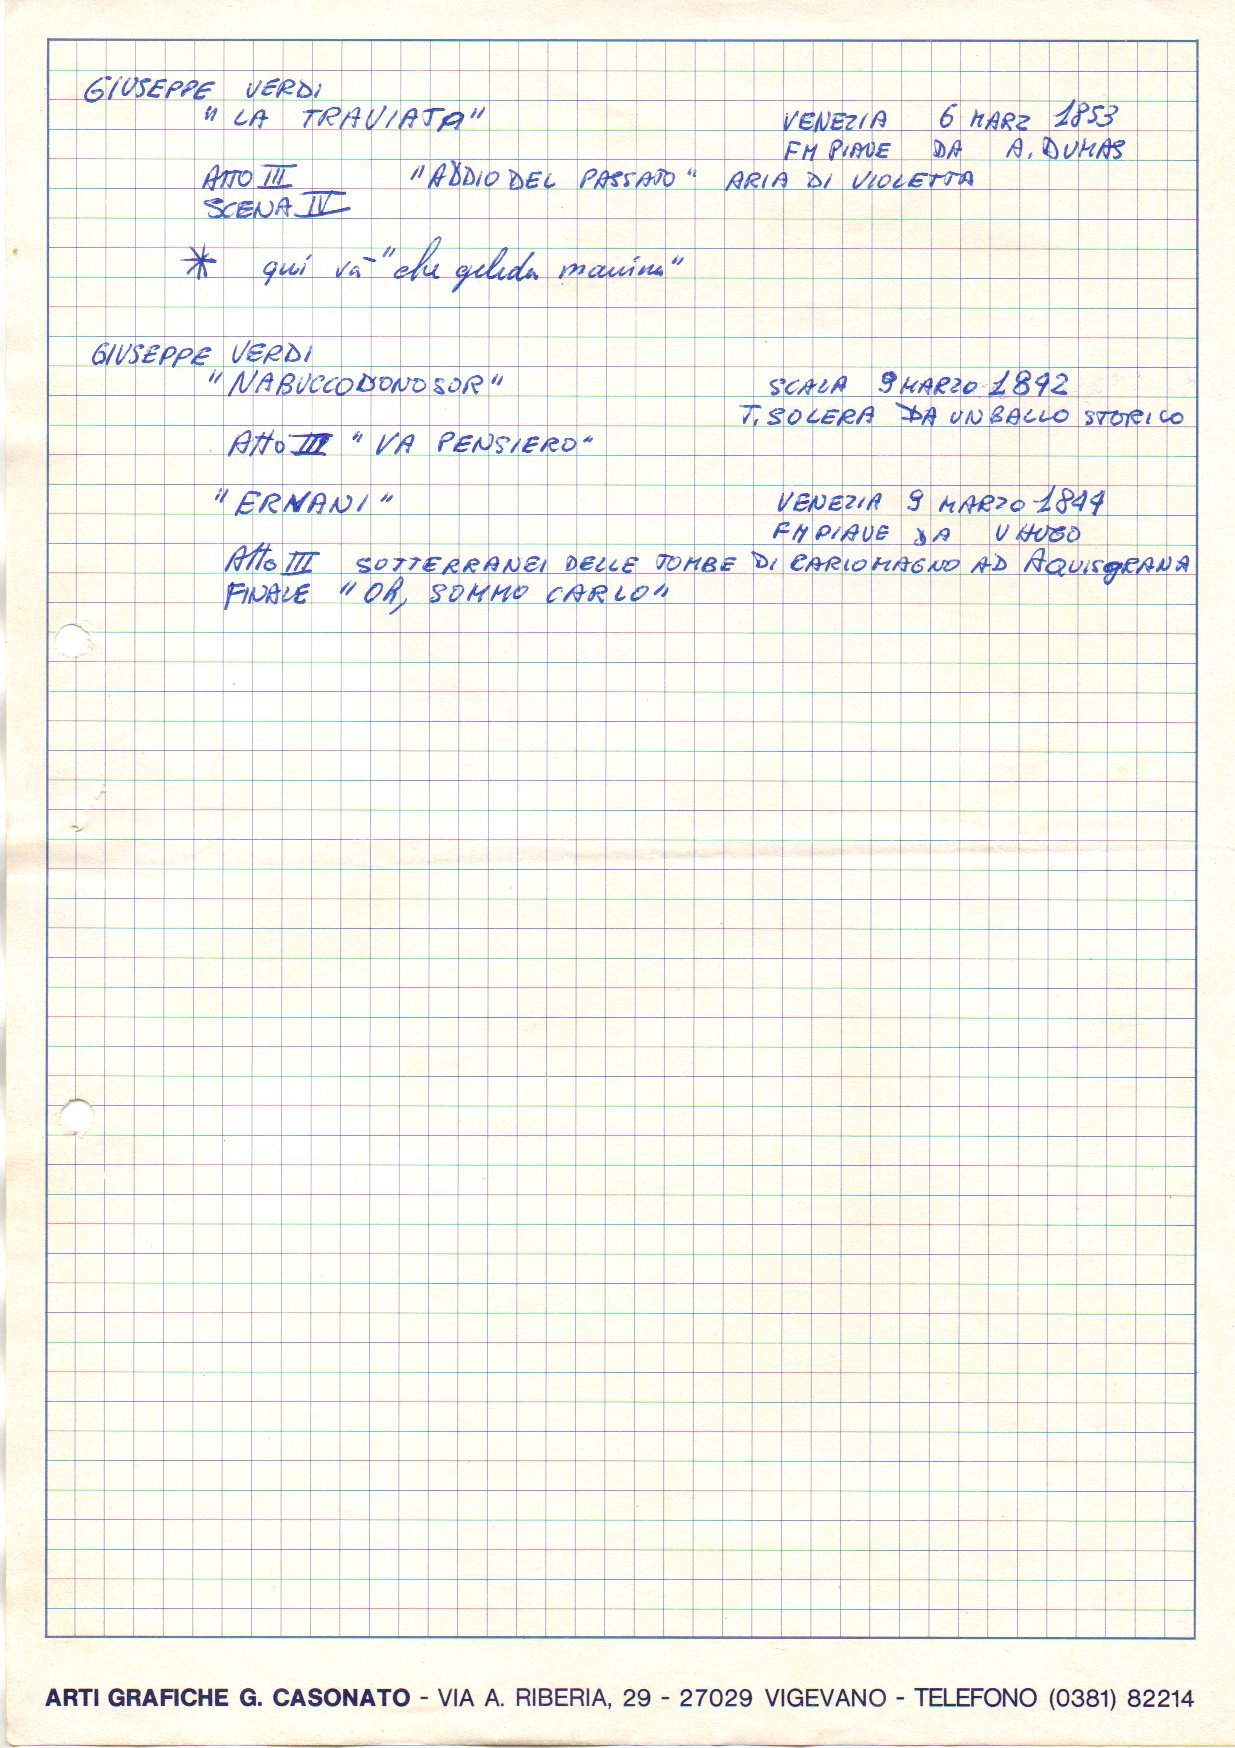 GIUSEPPE VERDI
"LA TRAVIATA" VENEZIA 6 MARZ 1853
FM PIAVE DA A. DUMAS
ATTO III "ADDIO DEL PASSATO" ARIA DI VIOLETTA
SCENA IV
* qui va "che gelida manina"
GIUSEPPE VERDI
"NABUCCODONOSOR" SCALA 9 MARZO 1842
T. SOLERA DA UN BALLO STORICO
Atto III "VA PENSIERO"
"ERNANI" VENEZIA 9 MARZO 1844
FM PIAVE DA V HUGO
Atto III SOTTERRANEI DELLE TOMBE DI CARLOMAGNO AD AQUISGRANA
FINALE "OH, SOMMO CARLO"
ARTI GRAFICHE G. CASONATO - VIA A. RIBERIA, 29 - 27029 VIGEVANO - TELEFONO (0381) 82214